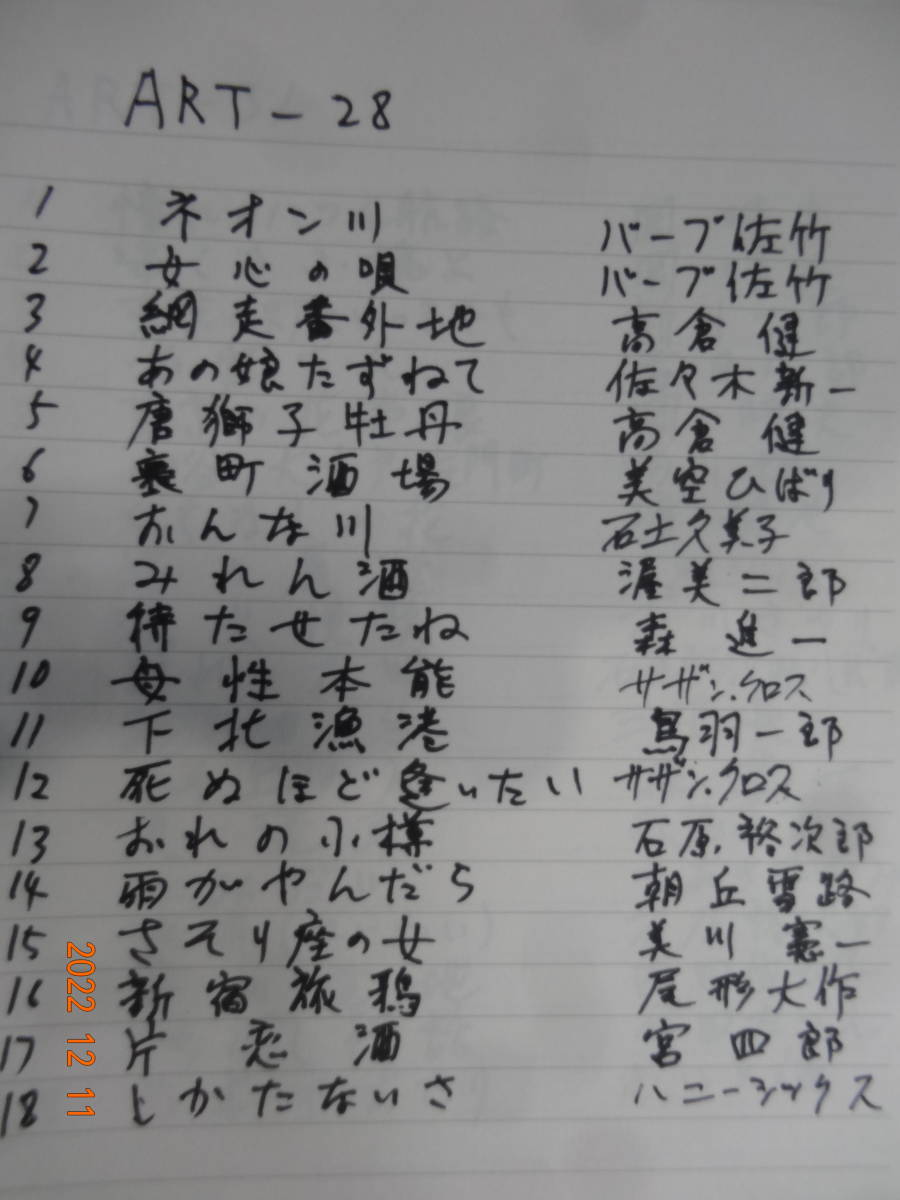 ART-28
1 ネオン川 バーブ佐竹
2 女心の唄 バーブ佐竹
3 網走番外地 高倉健
4 あの娘たずねて 佐々木新一
5 唐獅子牡丹 高倉健
6 裏町酒場 美空ひばり
7 おんな川 石土久美子
8 みれん酒 渥美二郎
9 待たせたね 森進一
10 母性本能 サザン.クロス
11 下北漁港 鳥羽一郎
12 死ぬほど逢いたい サザン.クロス
13 おれの小樽 石原裕次郎
14 雨がやんだら 朝丘雪路
15 さそり座の女 美川憲一
16 新宿旅鴉 尾形大作
17 片恋酒 宮四郎
18 しかたないさ ハニーシックス
2022 12 11